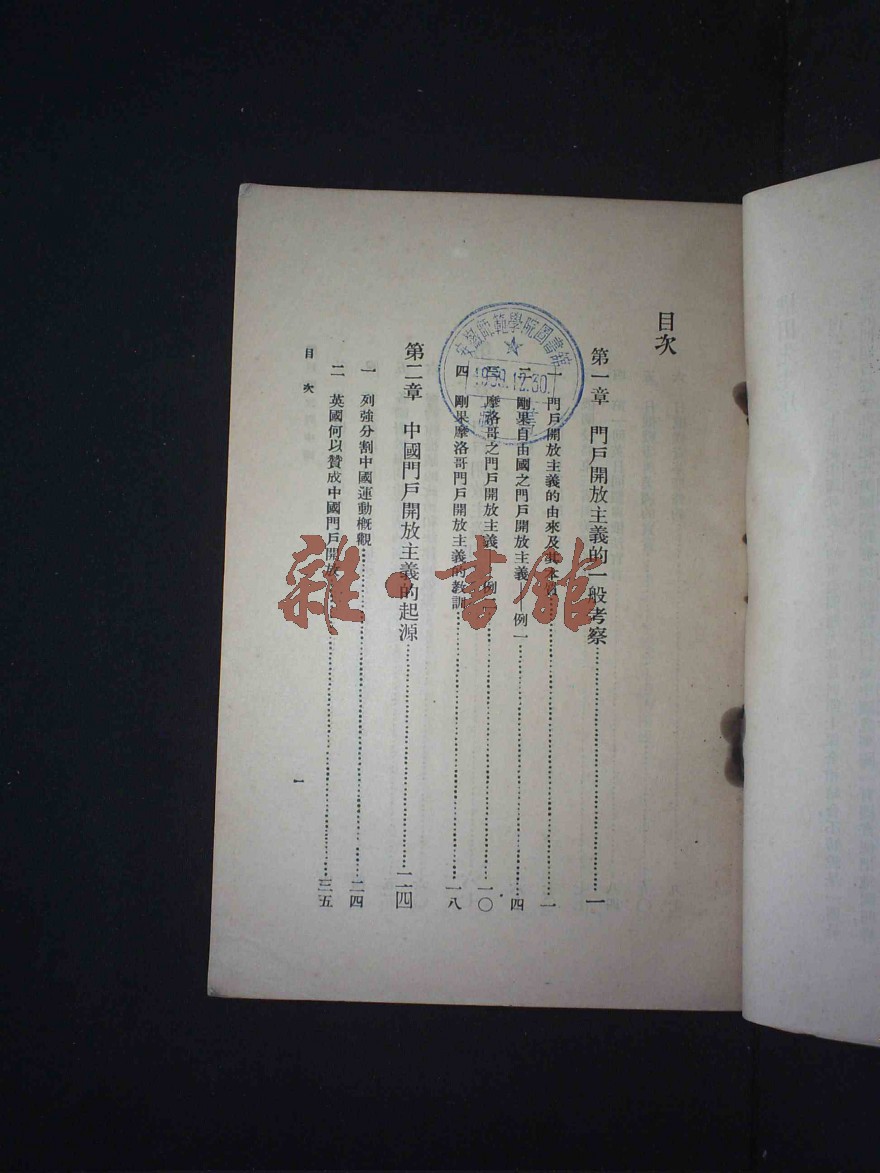 目次
第一章 門戶開放主義的一般考察……一
一 門戶開放主義的由來及其本質……一
二 剛果自由國之門戶開放主義——例一……四
三 摩洛哥之門戶開放主義——例二……一〇
四 剛果摩洛哥門戶開放主義的教訓……一八
第二章 中國門戶開放主義的起源……二四
一 列強分割中國運動概觀……二四
二 英國何以贊成中國門戶開放……三五
目次
一
安徽師範學院圖書館
1959.12.30.
雜·書館